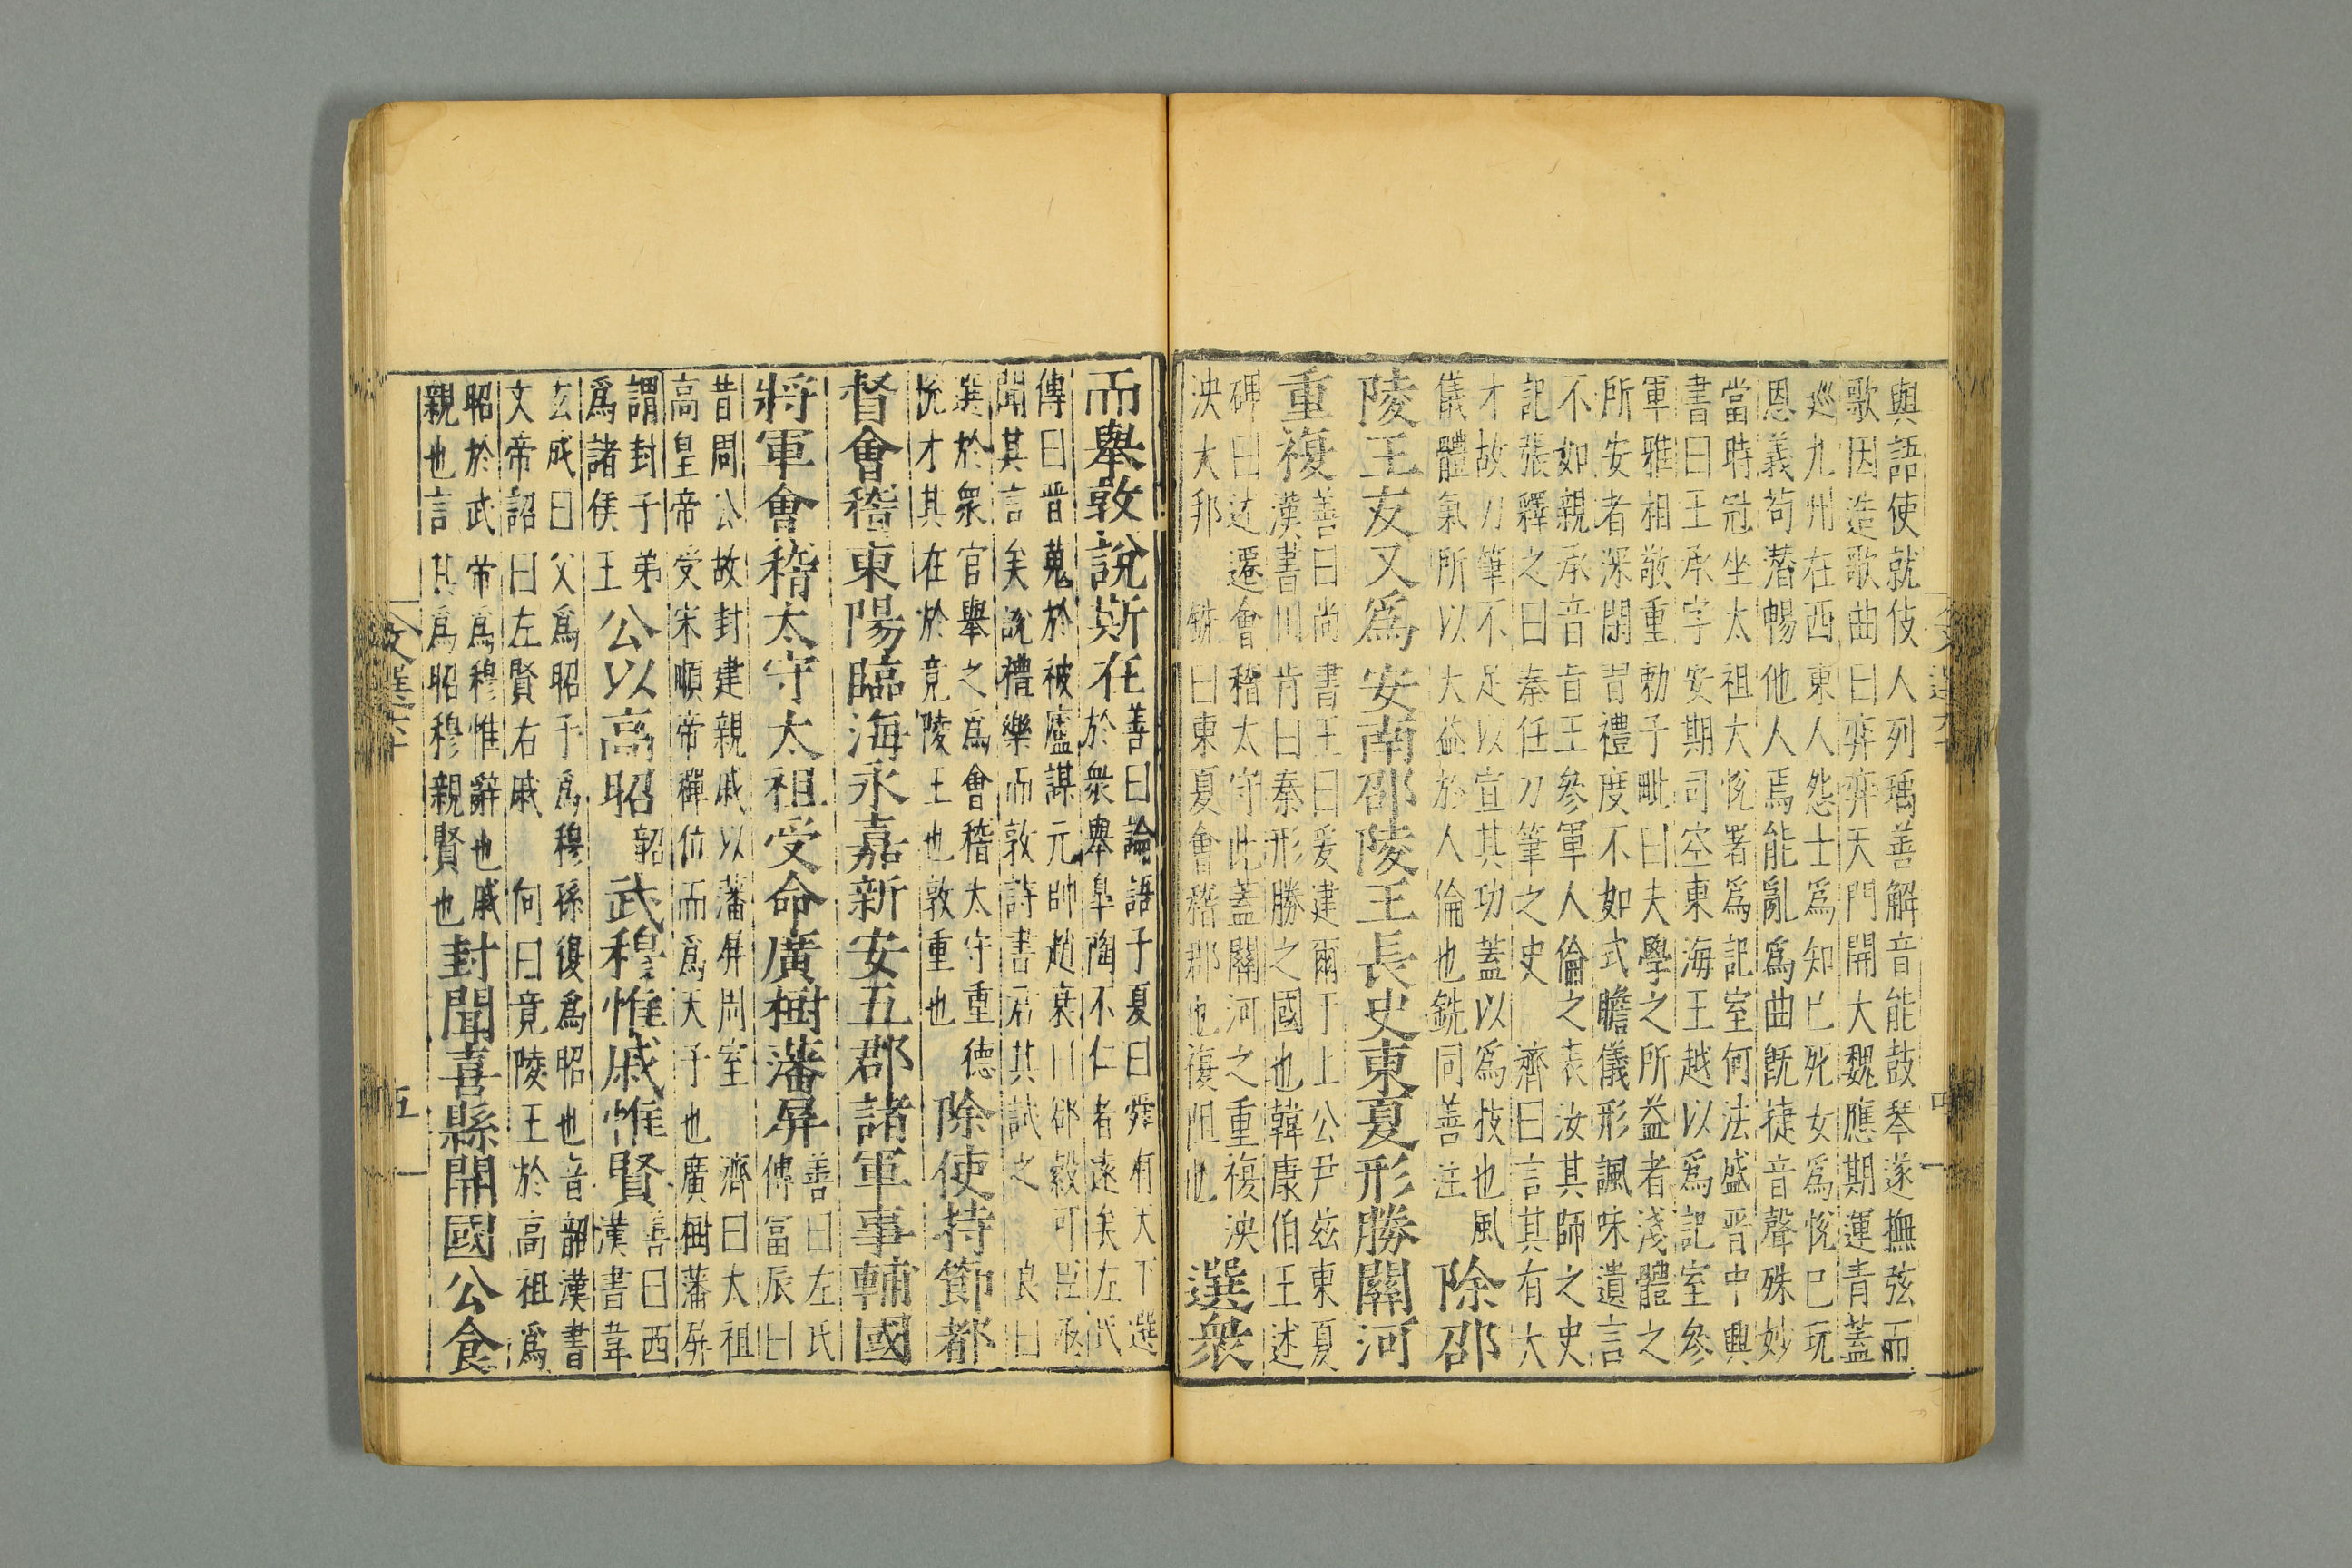 與語使就伎人列瑀善解音能鼓琴遂撫弦而
歌因造歌曲曰弈弈天門開大魏應期運青蓋
巡九州在西東人怨士爲知已死女爲恱已玩
恩義苟潛暢他人焉能亂爲曲旣捷音聲殊妙
當時冠坐太祖大恱署爲記室何法盛晉中興
書曰王承字安期司空東海王越以爲記室參
軍雅相敬重勑子毗曰夫學之所益者淺體之
所安者深閑習禮度不如式瞻儀形諷味遺言
不如親承音旨王參軍人倫之表汝其師之史
記張釋之曰秦任刀筆之史 濟曰言其有大
才故刀筆不足以宣其功蓋以爲技也風
儀體氣所以大益於人倫也銑同善注
除邵
陵王友又爲安南邵陵王長史東夏形勝關河
重複
善曰尚書王曰爰建爾于上公尹兹東夏
漢書田肯曰秦形勝之國也韓康伯王述
碑曰迁遷會稽太守此蓋關河之重複泱
泱大邦 銑曰東夏會稽郡也複阻也
選衆
而舉敦說斯在
善曰論語子夏曰舜有天下選
於衆舉臯陶不仁者遠矣左氏
傳曰晉蒐於被廬謀元帥趙衰曰郤縠可臣亟
聞其言矣說禮樂而敦詩書君其試之 良曰
選於衆官舉之爲會稽太守重德
恱才其在於竟陵王也敦重也
除使持節都
督會稽東陽臨海永嘉新安五郡諸軍事輔國
將軍會稽太守太祖受命廣樹藩屏
善曰左氏
傳富辰曰
昔周公故封建親戚以藩屏周室 濟曰太祖
高皇帝受宋順帝禪位而爲天子也廣樹藩屏
謂封子弟
爲諸侯王
公以高昭
韶
武穆惟戚惟賢
善曰西
漢書韋
玄成曰父爲昭子爲穆孫復爲昭也音韶漢書
文帝詔曰左賢右戚 向曰竟陵王於高祖爲
昭於武帝爲穆惟辭也戚
親也言其爲昭穆親賢也
封聞喜縣開國公食
文選六十
五